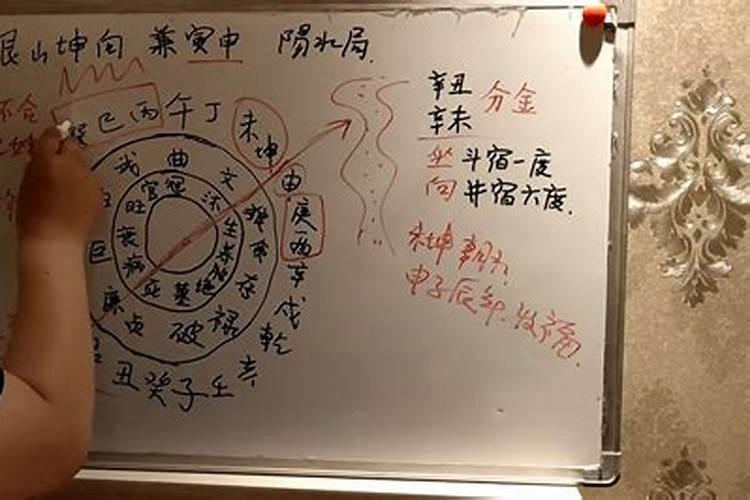 艮山坤向 兼寅申 陽水局
不合
巽巳丙午丁
未
坤
申
庚
酉
辛
戌
乾
亥
壬
子
癸
丑
武 曲 文
官 冠 沐
旺 生
衰
病
死 墓 绝
巨
存
廉 贞 破 禄
辛丑
辛未
分金
坐 斗宿一度
向 井宿六度.
未坤朝水
申子辰年.发福.